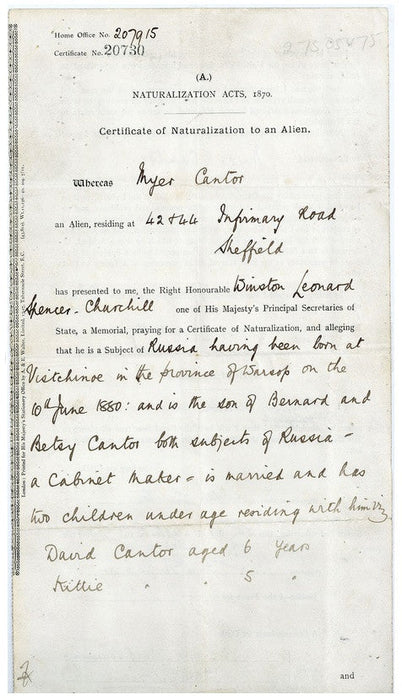 Home Office No. 207915
Certificate No. 20730
(A.)
NATURALIZATION ACTS, 1870.
Certificate of Naturalization to an Alien.
Whereas Myer Cantor
an Alien, residing at 42 & 44 Infirmary Road
Sheffield
has presented to me, the Right Honourable Winston Leonard
Spencer-Churchill one of His Majesty's Principal Secretaries of
State, a Memorial, praying for a Certificate of Naturalization, and alleging
that he is a Subject of Russia having been born at
Vistchinoe in the province of Warsop on the
10th June 1880: and is the son of Bernard and
Betsy Cantor both subjects of Russia –
a Cabinet Maker – is married and has
two children under age residing with him viz
David Cantor aged 6 years
Kittie " " 5 "
and